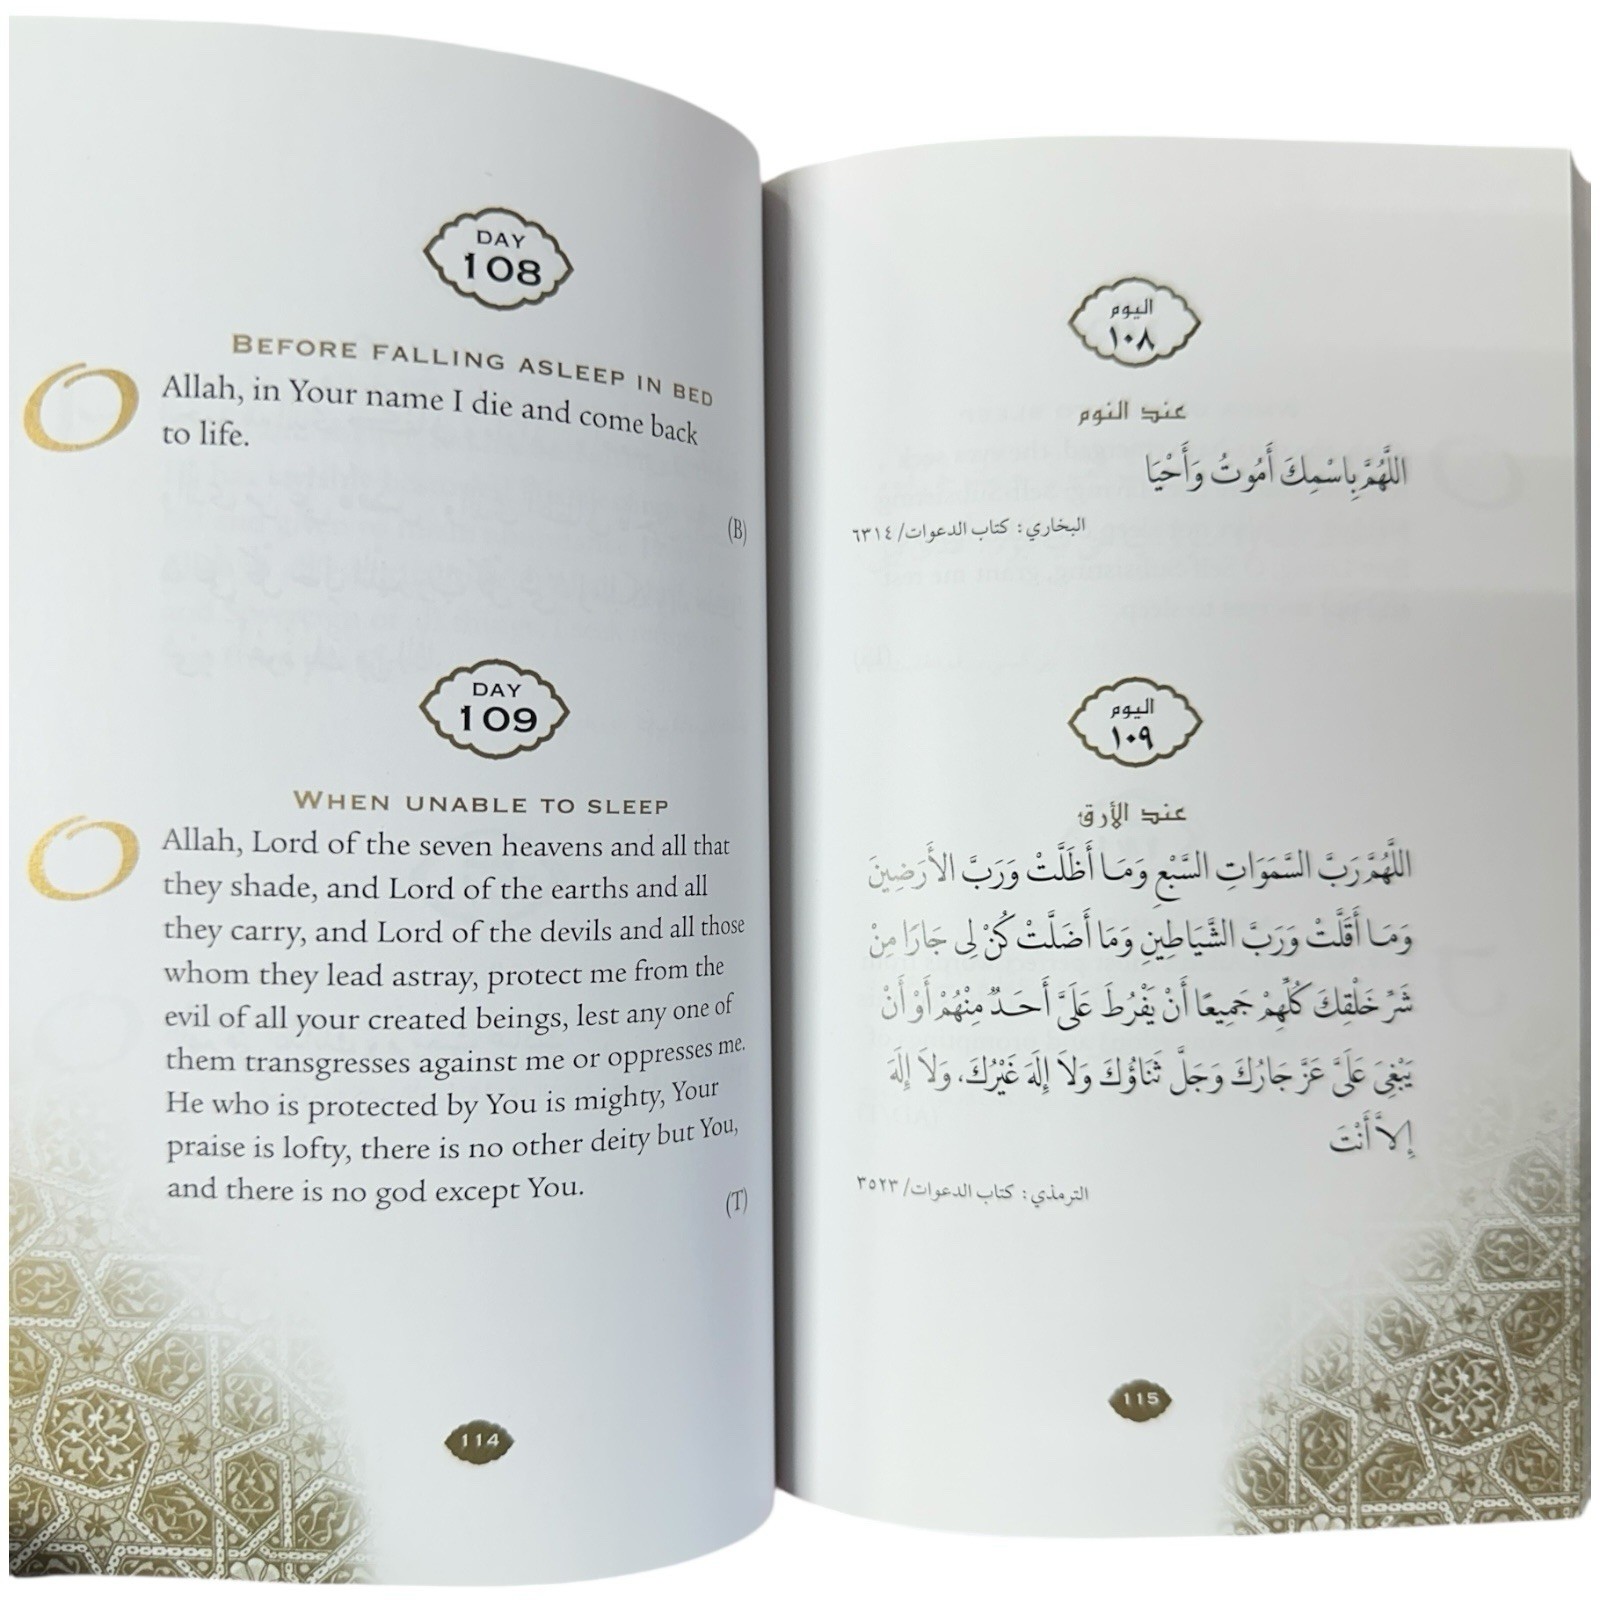 DAY
108
BEFORE FALLING ASLEEP IN BED
O Allah, in Your name I die and come back
to life.
(B)
DAY
109
WHEN UNABLE TO SLEEP
O Allah, Lord of the seven heavens and all that
they shade, and Lord of the earths and all
they carry, and Lord of the devils and all those
whom they lead astray, protect me from the
evil of all your created beings, lest any one of
them transgresses against me or oppresses me.
He who is protected by You is mighty, Your
praise is lofty, there is no other deity but You,
and there is no god except You.
(T)
114
اليوم
١٠٨
عند النوم
اللَّهُمَّ بِاسْمِكَ أَمُوتُ وَأَحْيَا
البخاري: كتاب الدعوات/ ٦٣١٤
اليوم
١٠٩
عند الأرق
اللَّهُمَّ رَبَّ السَّمَوَاتِ السَّبْعِ وَمَا أَظَلَّتْ وَرَبَّ الأَرَضِينَ
وَمَا أَقَلَّتْ وَرَبَّ الشَّيَاطِينِ وَمَا أَضَلَّتْ كُنْ لِى جَارًا مِنْ
شَرِّ خَلْقِكَ كُلِّهِمْ جَمِيعًا أَنْ يَفْرُطَ عَلَىَّ أَحَدٌ مِنْهُمْ أَوْ أَنْ
يَبْغِىَ عَلَىَّ عَزَّ جَارُكَ وَجَلَّ ثَنَاؤُكَ وَلاَ إِلَهَ غَيْرُكَ، وَلاَ إِلَهَ
إِلاَّ أَنْتَ
الترمذي: كتاب الدعوات/ ٣٥٢٣
115